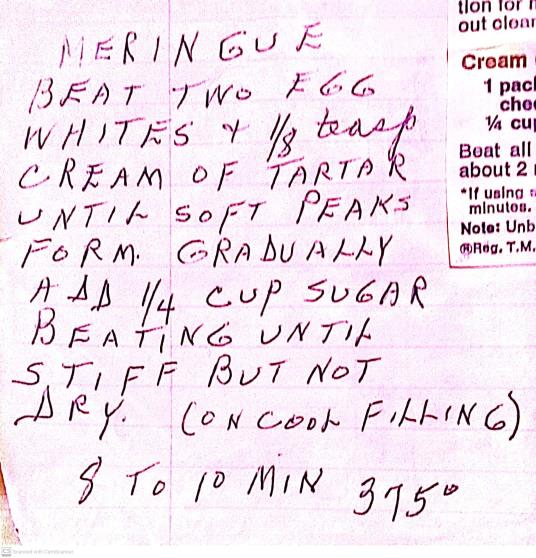 MERINGUE
BEAT TWO EGG
WHITES & 1/8 teasp
CREAM OF TARTAR
UNTIL SOFT PEAKS
FORM. GRADUALLY
ADD 1/4 CUP SUGAR
BEATING UNTIL
STIFF BUT NOT
DRY. (ON COOL FILLING)
8 TO 10 MIN 375°
tion for
out clean
Cream
1 pac
che
¼ cu
Beat all
about 2
*If using
minutes.
Note: Unb
®Reg. T.M.
CS Scanned with CamScanner